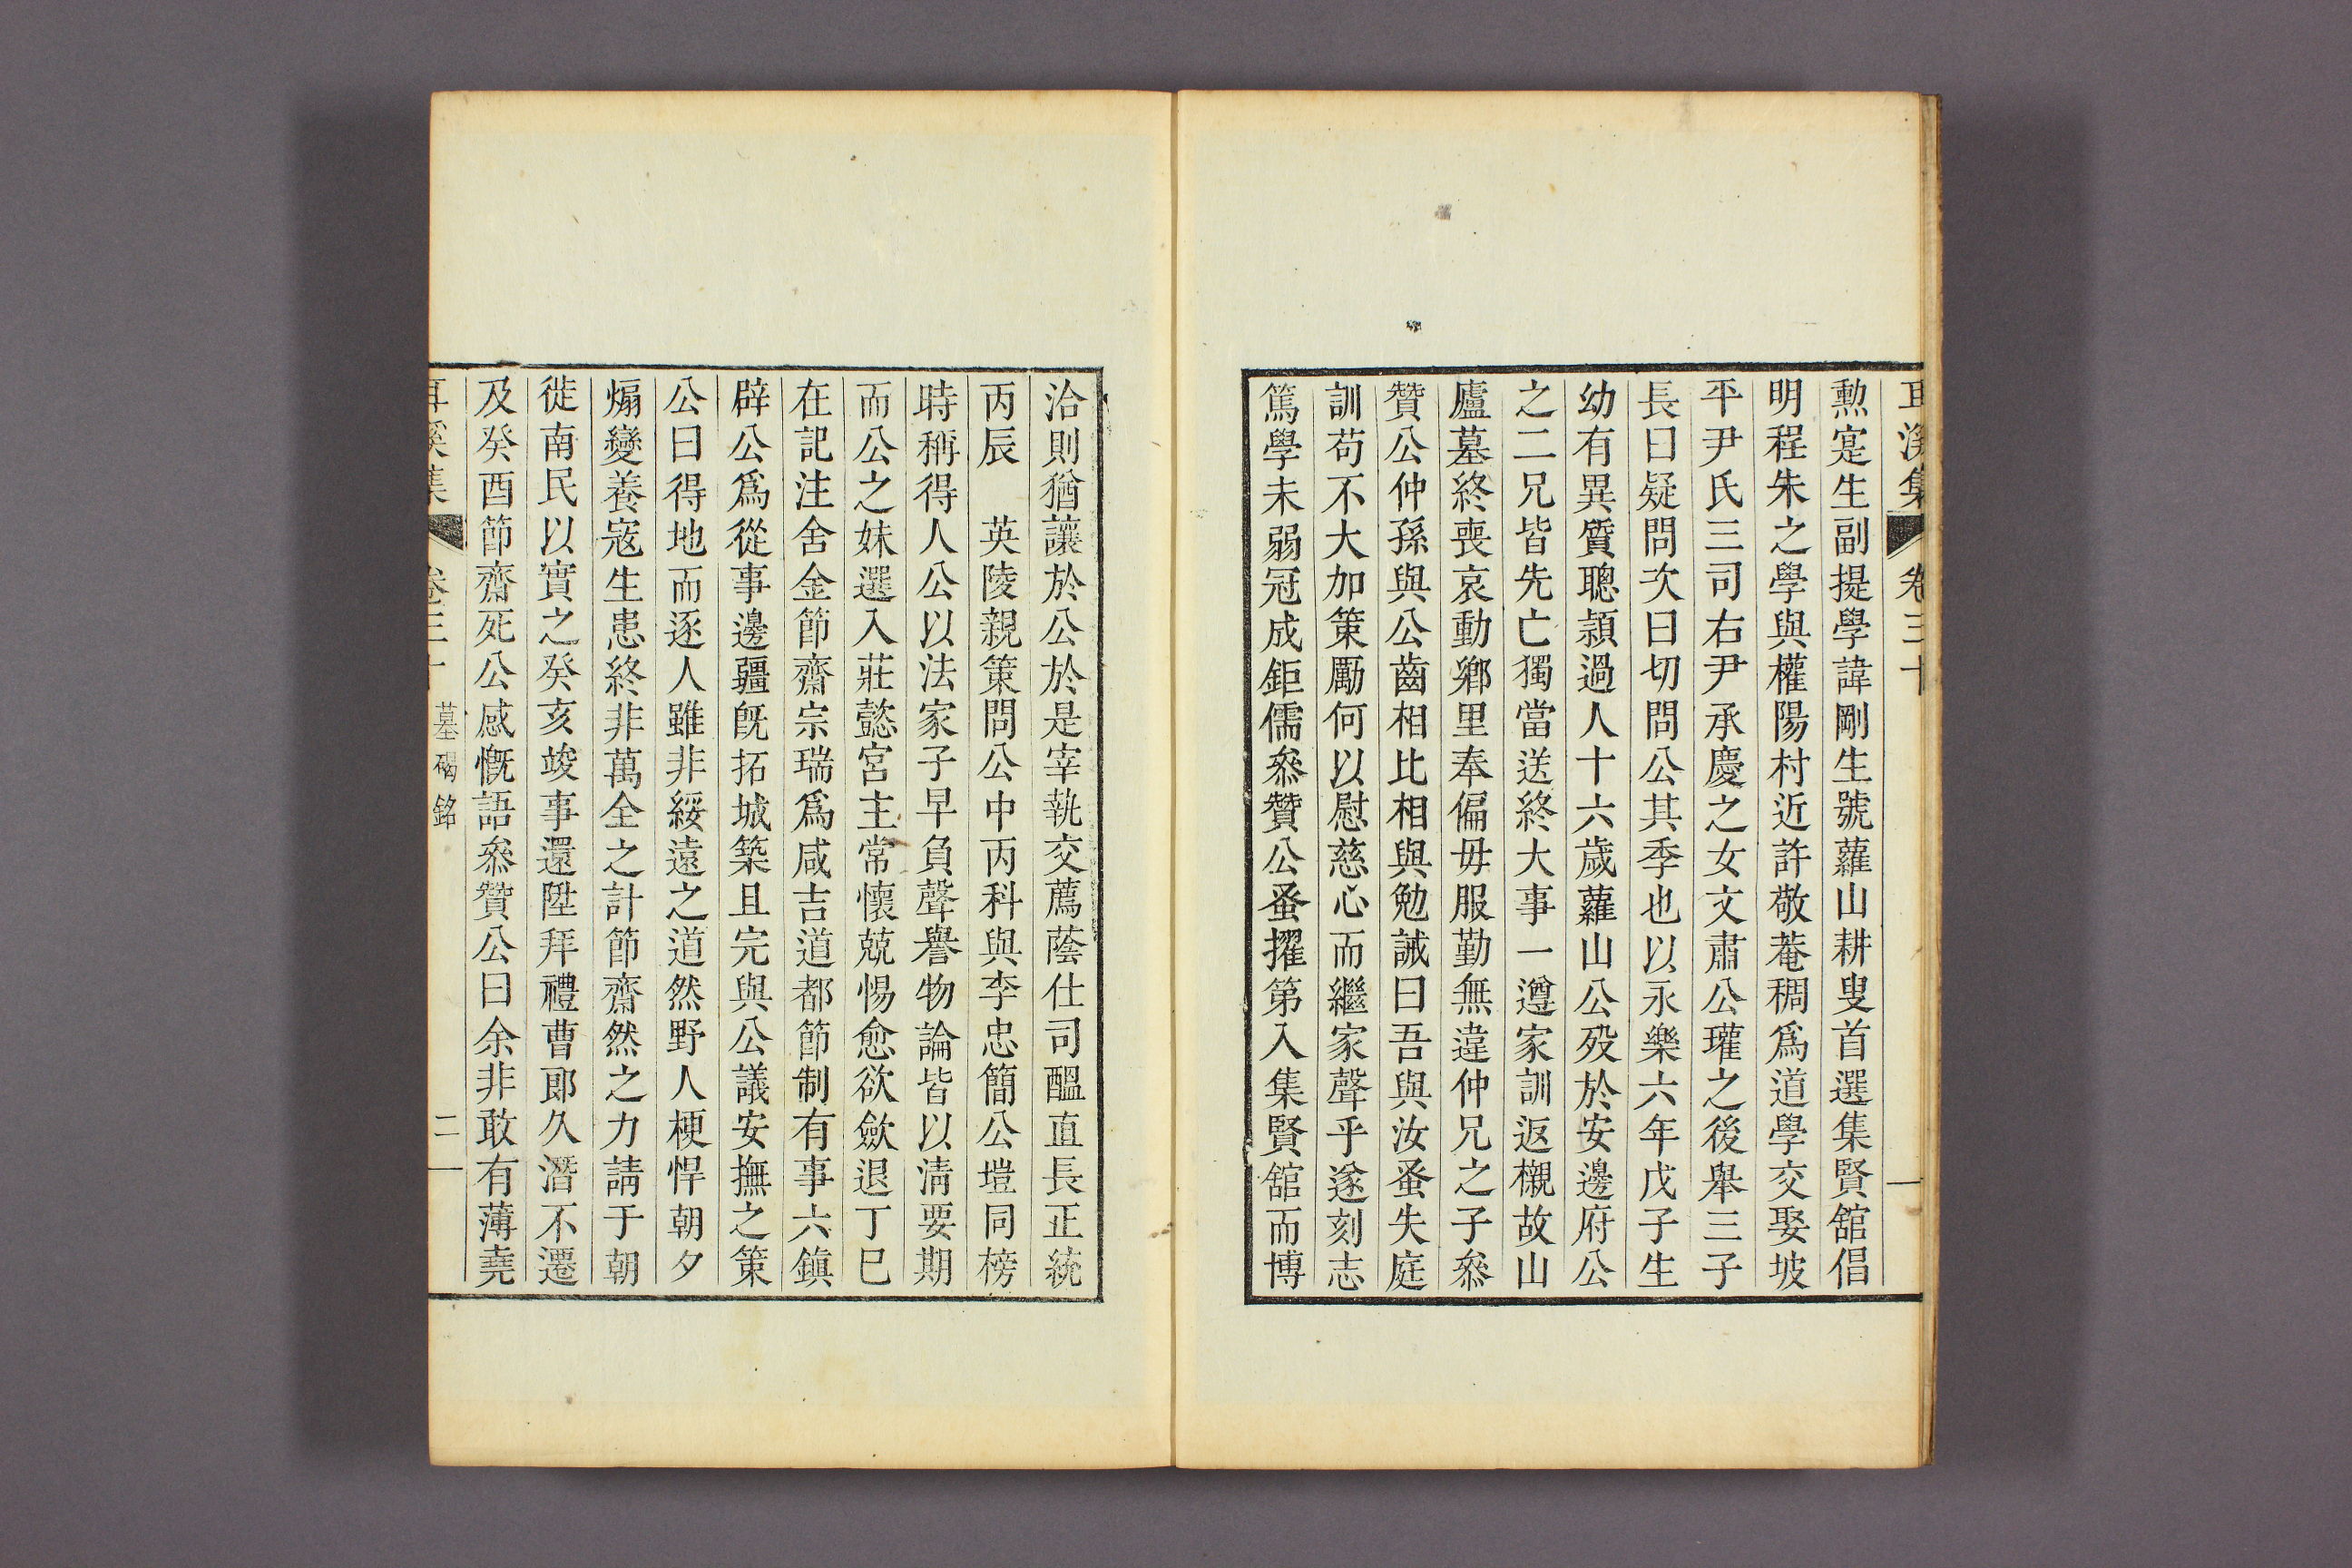 耳溪集 卷三十 一
勳寔生副提學諱剛生號蘿山耕叟首選集賢舘倡
明程朱之學與權陽村近許敬菴稠爲道學交娶坡
平尹氏三司右尹承慶之女文肅公瓘之後舉三子
長曰疑問次曰切問公其季也以永樂六年戊子生
幼有異質聰頴過人十六歲蘿山公歿於安邊府公
之二兄皆先亡獨當送終大事一遵家訓返櫬故山
廬墓終喪哀動鄕里奉偏毋服勤無違仲兄之子叅
贊公仲孫與公齒相比相與勉誡曰吾與汝蚤失庭
訓苟不大加策勵何以慰慈心而繼家聲乎遂刻志
篤學未弱冠成鉅儒叅贊公蚤擢第入集賢舘而博
洽則猶讓於公於是宰執交薦蔭仕司醞直長正統
丙辰　英陵親策問公中丙科與李忠簡公塏同榜
時稱得人公以法家子早負聲譽物論皆以淸要期
而公之妹選入莊懿宮主常懷兢惕愈欲歛退丁巳
在記注舍金節齋宗瑞爲咸吉道都節制有事六鎭
辟公爲從事邊疆旣拓城築且完與公議安撫之策
公曰得地而逐人雖非綏遠之道然野人梗悍朝夕
煽變養寇生患終非萬全之計節齋然之力請于朝
徙南民以實之癸亥竣事還陞拜禮曹郎久潛不遷
及癸酉節齋死公感慨語叅贊公曰余非敢有薄堯
耳溪集 卷三十 墓碣銘 二